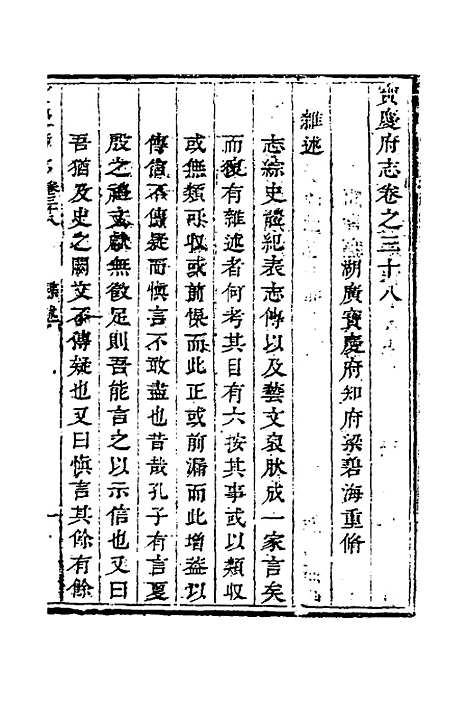 寳慶府志卷之三十八
湖廣寶慶府知府梁碧海重脩
雜述
志綜史牒紀表志傳以及藝文裒肰成一家言矣
而復有雜述者何考其目有六按其事或以類収
或無類可収或前悞而此正或前漏而此增葢以
傳信不傳疑而慎言不敢盡也昔哉孔子有言夏
殷之禮文獻無徵足則吾能言之以示信也又曰
吾猶及史之闕文不傳疑也又曰慎言其餘有餘
卷三十八 雜述 一